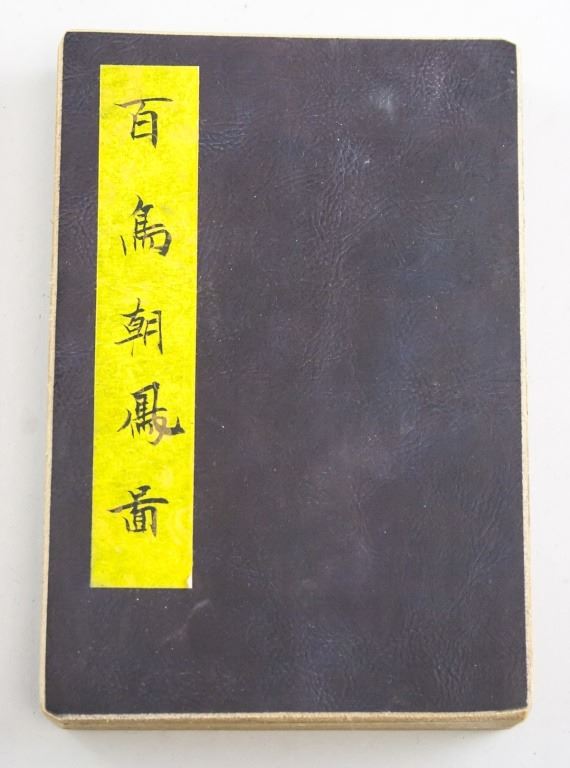 百鳥朝鳳啚